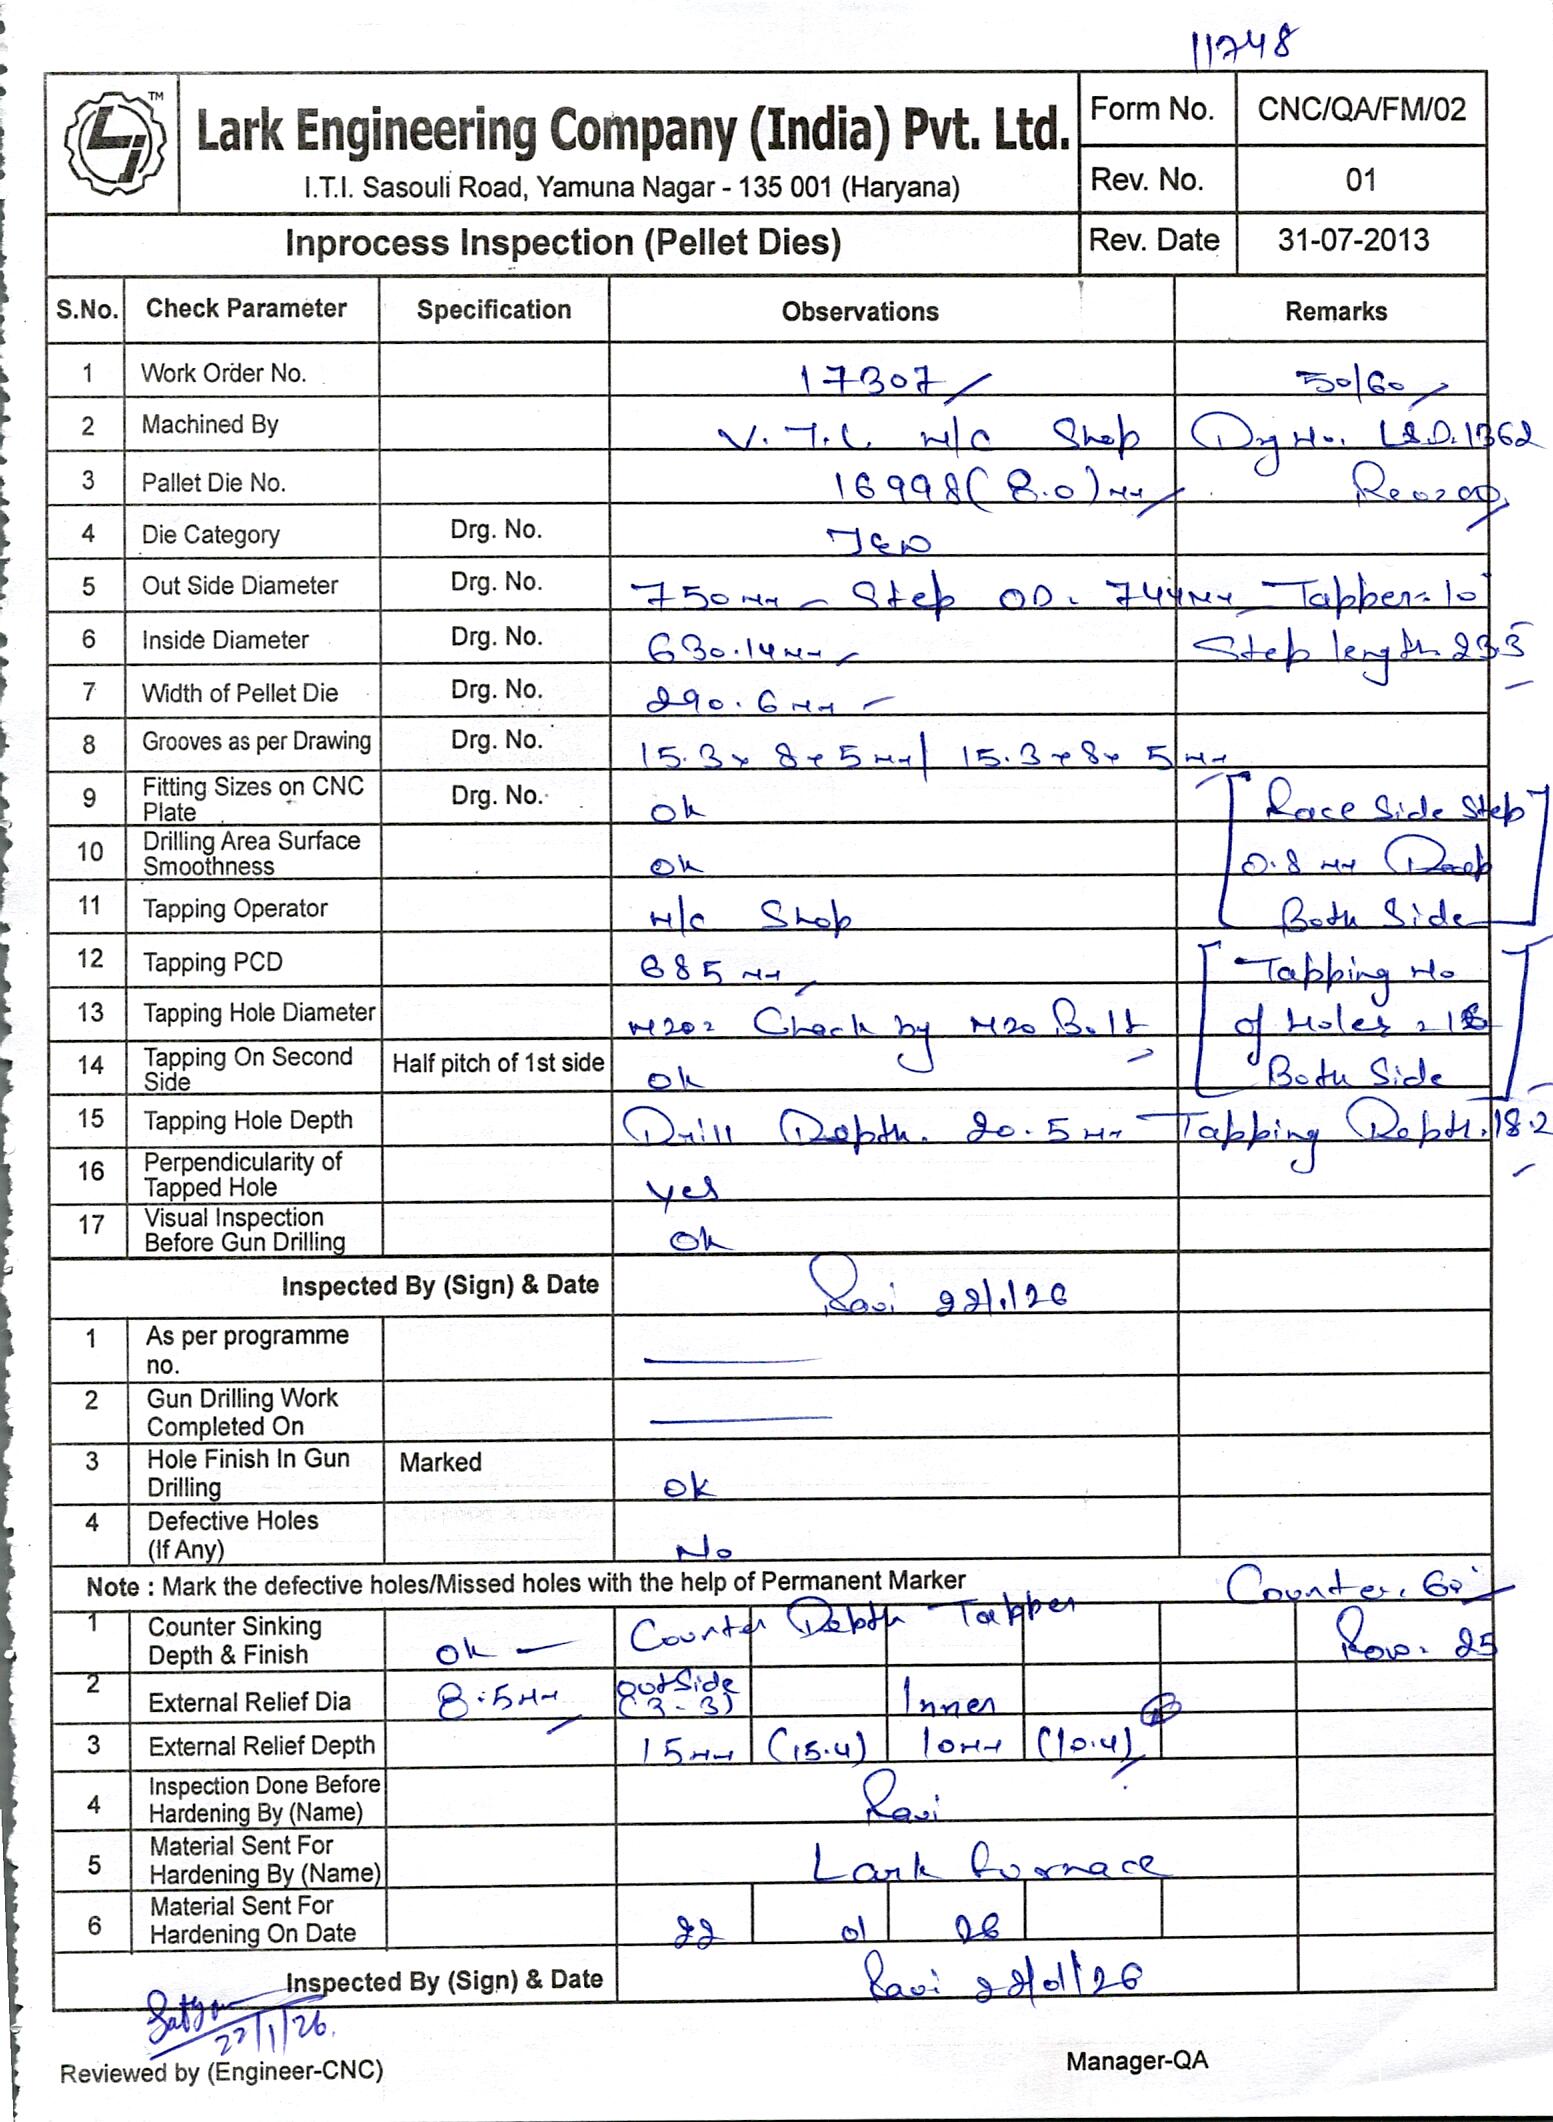 11748
TM
Lark Engineering Company (India) Pvt. Ltd.
I.T.I. Sasouli Road, Yamuna Nagar - 135 001 (Haryana)
Form No. CNC/QA/FM/02
Rev. No. 01
Inprocess Inspection (Pellet Dies)
Rev. Date 31-07-2013
S.No. Check Parameter Specification Observations Remarks
1 Work Order No. 17307 50/60
2 Machined By V.T.L. M/C Shop Drg No. L.S.D. 1362
3 Pallet Die No. 16998 (8.0) mm
4 Die Category Drg. No.
5 Out Side Diameter Drg. No. 750mm - Step OD. 744mm Tapper = 10°
6 Inside Diameter Drg. No. 630.14mm Step length 23.5
7 Width of Pellet Die Drg. No. 290.6mm
8 Grooves as per Drawing Drg. No. 15.3 x 8 x 5mm / 15.3 x 8 x 5mm
9 Fitting Sizes on CNC Plate Drg. No. Ok Race Side Step
10 Drilling Area Surface Smoothness Ok 0.8 mm Deep
11 Tapping Operator M/C Shop Both Side
12 Tapping PCD 685mm Tapping No
13 Tapping Hole Diameter M20 = Check by M20 Bolt of Holes =
14 Tapping On Second Side Half pitch of 1st side Ok Both Side
15 Tapping Hole Depth Drill Depth. 20.5mm Tapping Depth. 18.2
16 Perpendicularity of Tapped Hole Yes
17 Visual Inspection Before Gun Drilling Ok
Inspected By (Sign) & Date Ravi 22/1/26
1 As per programme no.
2 Gun Drilling Work Completed On
3 Hole Finish In Gun Drilling Marked Ok
4 Defective Holes (If Any) No
Note : Mark the defective holes/Missed holes with the help of Permanent Marker Counter. 60°
1 Counter Sinking Depth & Finish Ok Counter Depth Tapper Row. 25
2 External Relief Dia 8.5mm outSide (3-3) Inner
3 External Relief Depth 15mm (15.4) 10mm (10.4)
4 Inspection Done Before Hardening By (Name) Ravi
5 Material Sent For Hardening By (Name) Lark furnace
6 Material Sent For Hardening On Date 22 01 26
Inspected By (Sign) & Date Ravi 22/01/26
22/1/26.
Reviewed by (Engineer-CNC) Manager-QA